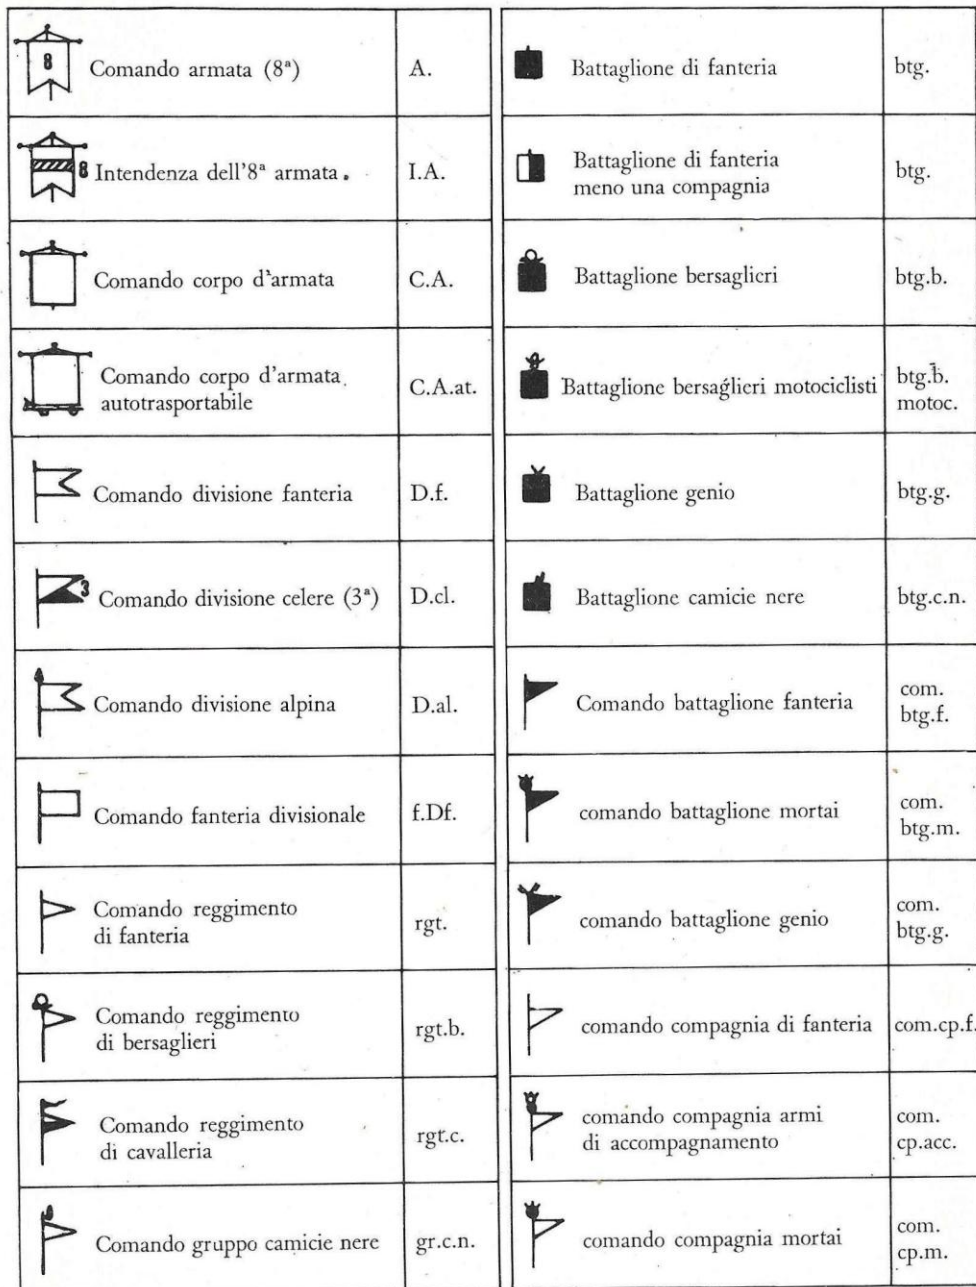 8 Comando armata (8ª) A.
8 Intendenza dell'8ª armata. I.A.
Comando corpo d'armata C.A.
Comando corpo d'armata
autotrasportabile C.A.at.
Comando divisione fanteria D.f.
3 Comando divisione celere (3ª) D.cl.
Comando divisione alpina D.al.
Comando fanteria divisionale f.Df.
Comando reggimento
di fanteria rgt.
Comando reggimento
di bersaglieri rgt.b.
Comando reggimento
di cavalleria rgt.c.
Comando gruppo camicie nere gr.c.n.
Battaglione di fanteria btg.
Battaglione di fanteria
meno una compagnia btg.
Battaglione bersaglieri btg.b.
Battaglione bersaglieri motociclisti btg.b.
motoc.
Battaglione genio btg.g.
Battaglione camicie nere btg.c.n.
Comando battaglione fanteria com.
btg.f.
comando battaglione mortai com.
btg.m.
comando battaglione genio com.
btg.g.
comando compagnia di fanteria com.cp.f.
comando compagnia armi
di accompagnamento com.
cp.acc.
comando compagnia mortai com.
cp.m.